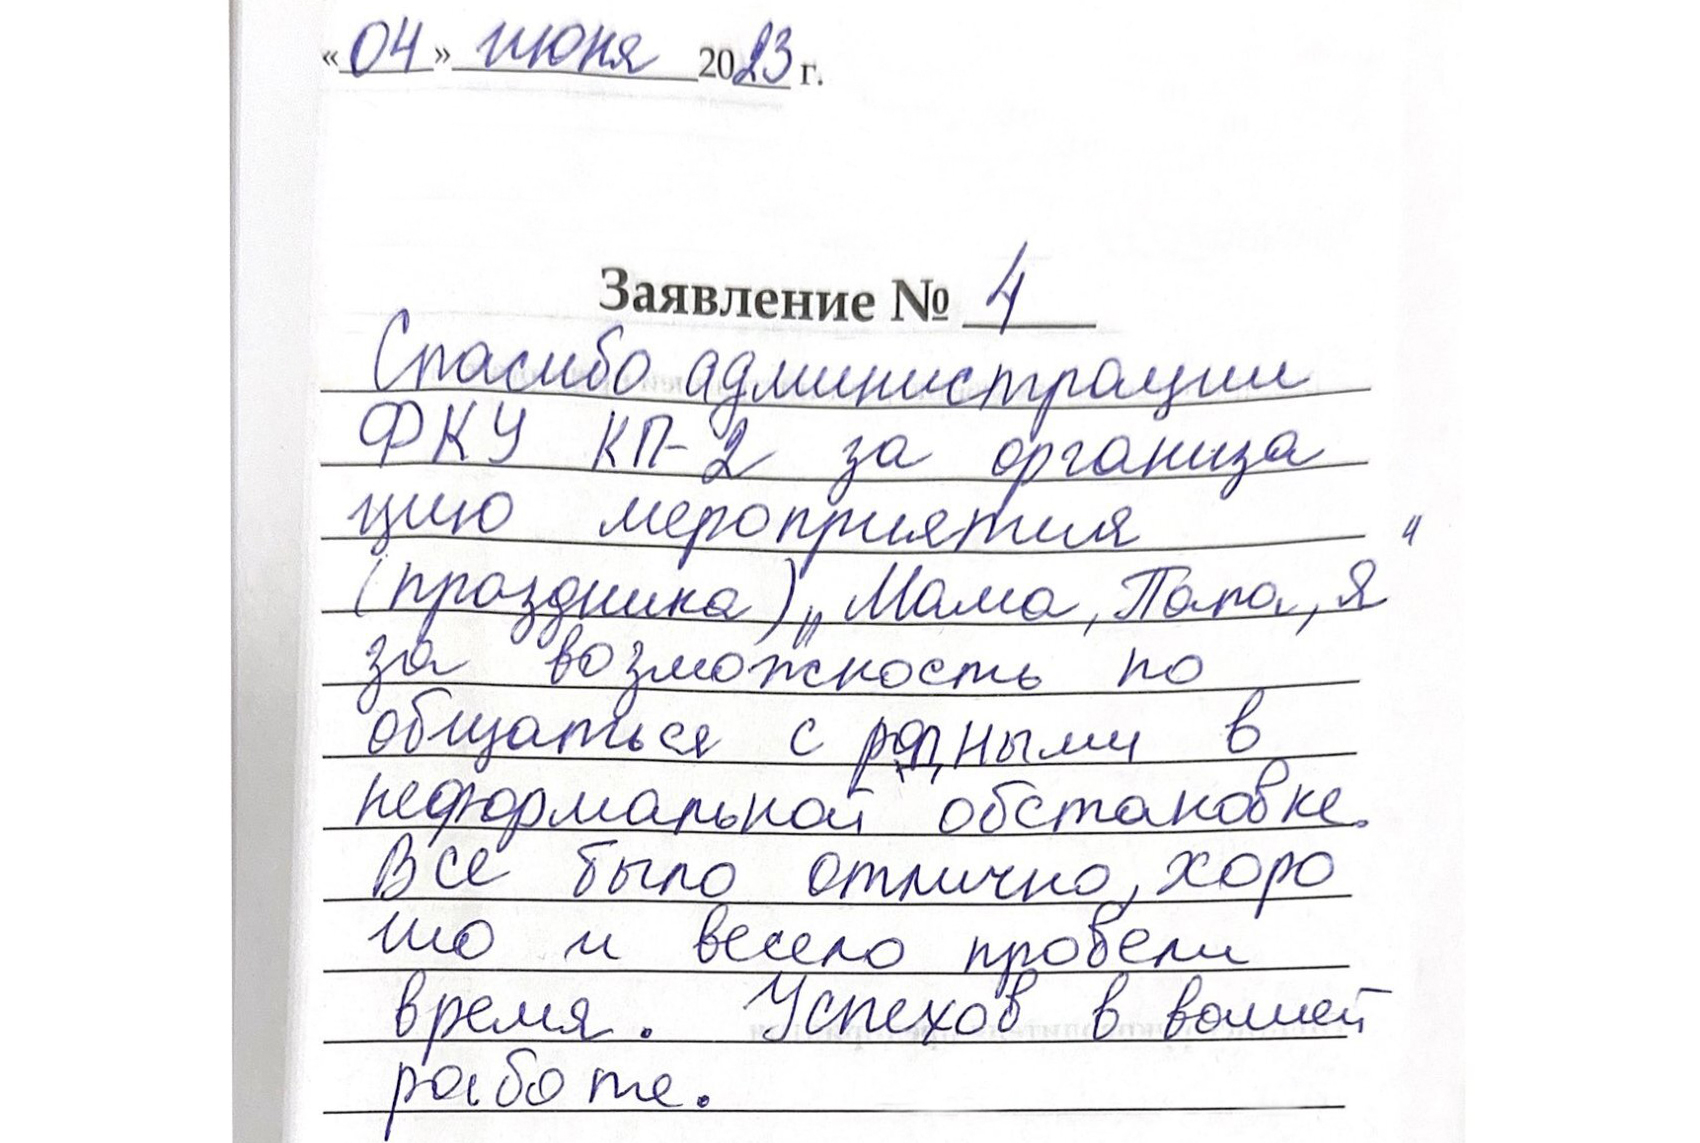 «04» июня 2023 г.
Заявление № 4
Спасибо администрации
ФКУ КП-2 за организа
цию мероприятия
(праздника) „Мама, Папа, я"
за возможность по
общаться с родными в
неформальной обстановке.
Все было отлично, хоро
шо и весело провели
время. Успехов в вашей
работе.